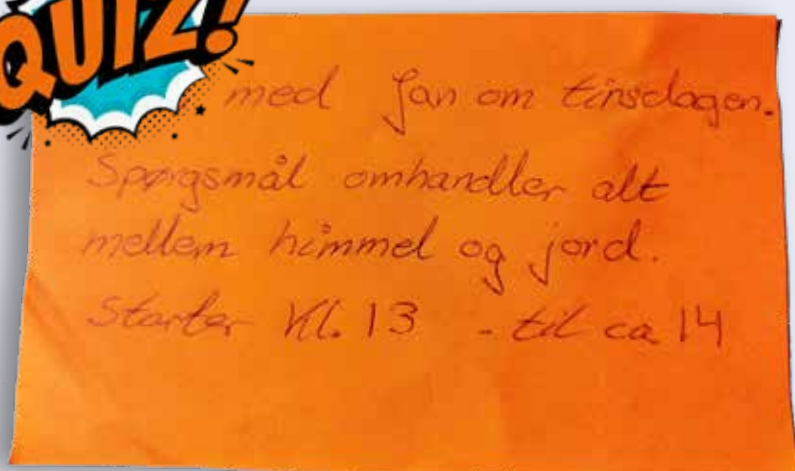 QUIZ!
med Jan om tirsdagen.
Spørgsmål omhandler alt
mellem himmel og jord.
Starter Kl. 13 - til ca 14